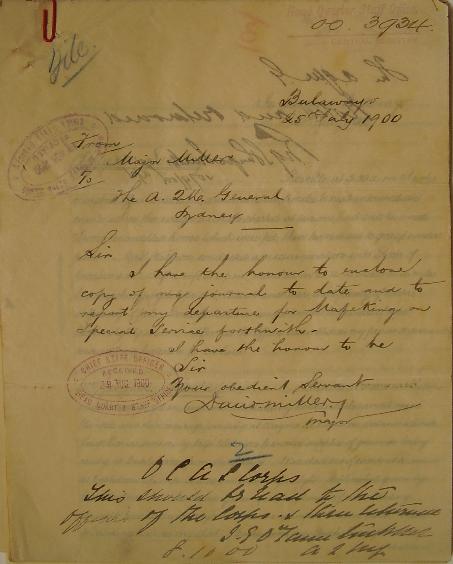 File.
00. 3934.
Bulawayo
25th July 1900
From
Major Miller
To
The A. Qtr. General
Sydney
Sir
I have the honour to enclose
copy of my journal to date and to
report my departure for Mafeking on
Special Service forthwith.
I have the honour to be
Sir
Your obedient Servant
David Miller
Major
CHIEF STAFF OFFICER
RECEIVED
28 AUG 1900
HEAD QUARTER STAFF OFFICE
2
O C A S Corps
This should be read to the
officers of the Corps &
8. 10 00